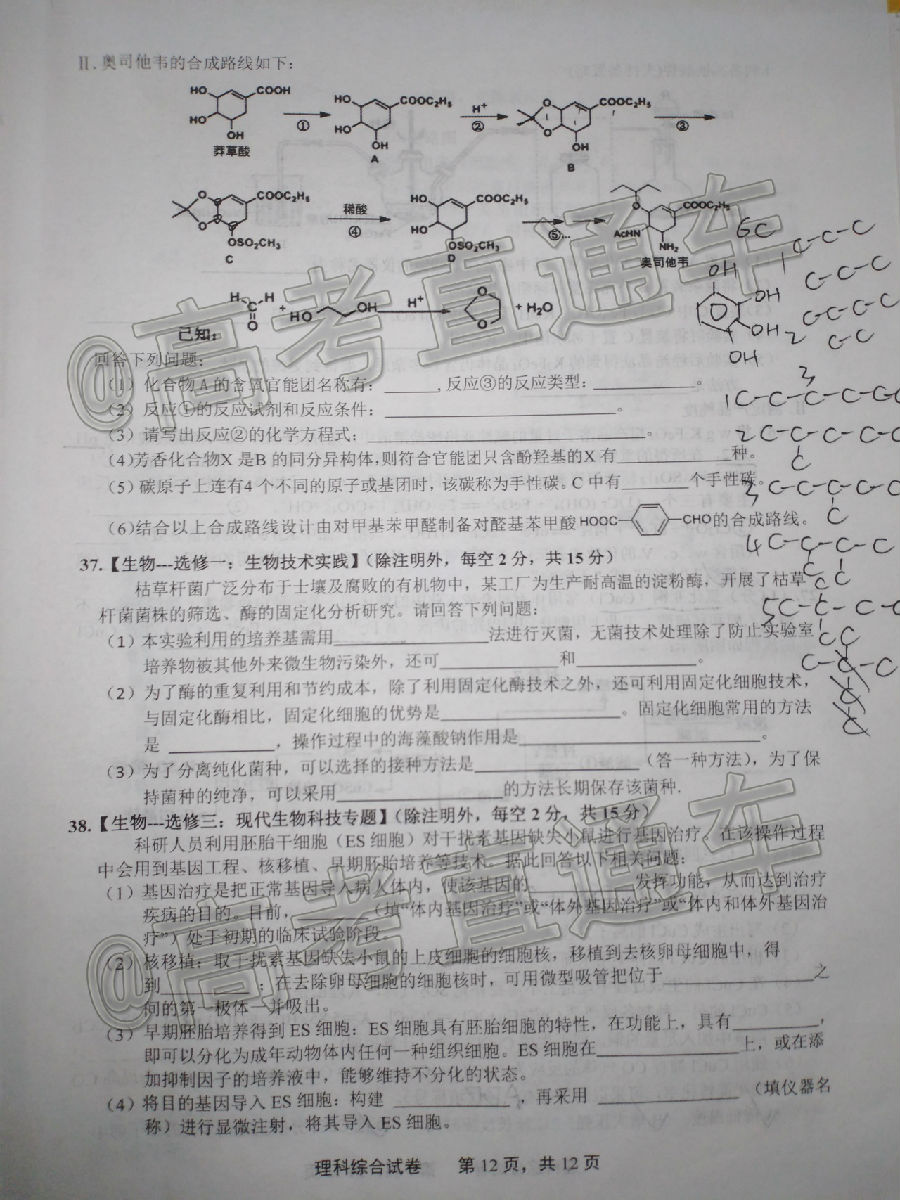 II.奥司他韦的合成路线如下:
HO COOH HO OH 莽草酸 ① HO COOC₂H₅ HO OH A H⁺ ② O COOC₂H₅ O OH B ③
O COOC₂H₅ O OSO₂CH₃ C 稀酸 ④ HO COOC₂H₅ HO OSO₂CH₃ D ⑤... O COOC₂H₅ AcHN NH₂ 奥司他韦
已知: H O + HO OH H⁺ O O + H₂O
6C
1 C-C-C
C-C-C
C-C-C-C
2 C-C
OH OH OH OH
3
回答下列问题:
(1)化合物A的含氧官能团名称有:______,反应③的反应类型:____________。
(2)反应①的反应试剂和反应条件:____________。
1 C-C-C-C-C-C
(3)请写出反应②的化学方程式:____________。
2 C-C-C-C-C
C
(4)芳香化合物X是B的同分异构体,则符合官能团只含酚羟基的X有____________种。
(5)碳原子上连有4个不同的原子或基团时,该碳称为手性碳。C中有________个手性碳。
3 C-C-C-C-C
C
(6)结合以上合成路线设计由对甲基苯甲醛制备对醛基苯甲酸HOOC-CHO的合成路线。
4 C-C-C-C
C C
37.【生物---选修一:生物技术实践】(除注明外,每空2分,共15分)
枯草杆菌广泛分布于土壤及腐败的有机物中,某工厂为生产耐高温的淀粉酶,开展了枯草
杆菌菌株的筛选、酶的固定化分析研究。请回答下列问题:
(1)本实验利用的培养基需用____________法进行灭菌,无菌技术处理除了防止实验室
培养物被其他外来微生物污染外,还可____________和____________。
(2)为了酶的重复利用和节约成本,除了利用固定化酶技术之外,还可利用固定化细胞技术,
与固定化酶相比,固定化细胞的优势是____________。固定化细胞常用的方法
是____________,操作过程中的海藻酸钠作用是____________。
(3)为了分离纯化菌种,可以选择的接种方法是____________(答一种方法),为了保
持菌种的纯净,可以采用____________的方法长期保存该菌种.
38.【生物---选修三:现代生物科技专题】(除注明外,每空2分,共15分)
科研人员利用胚胎干细胞(ES细胞)对干扰素基因缺失小鼠进行基因治疗。在该操作过程
中会用到基因工程、核移植、早期胚胎培养等技术。据此回答以下相关问题:
(1)基因治疗是把正常基因导入病人体内,使该基因的____________发挥功能,从而达到治疗
疾病的目的。目前,________(填“体内基因治疗”或“体外基因治疗”或“体内和体外基因治
疗”)处于初期的临床试验阶段
(2)核移植:取干扰素基因缺失小鼠的上皮细胞的细胞核,移植到去核卵母细胞中,得
到____________;在去除卵母细胞的细胞核时,可用微型吸管把位于____________之
间的第一极体一并吸出。
(3)早期胚胎培养得到ES细胞:ES细胞具有胚胎细胞的特性,在功能上,具有________,
即可以分化为成年动物体内任何一种组织细胞。ES细胞在____________上,或在添
加抑制因子的培养液中,能够维持不分化的状态。
(4)将目的基因导入ES细胞:构建____________,再采用____________(填仪器名
称)进行显微注射,将其导入ES细胞。
理科综合试卷 第12页,共12页
@高考直通车
@高考直通车